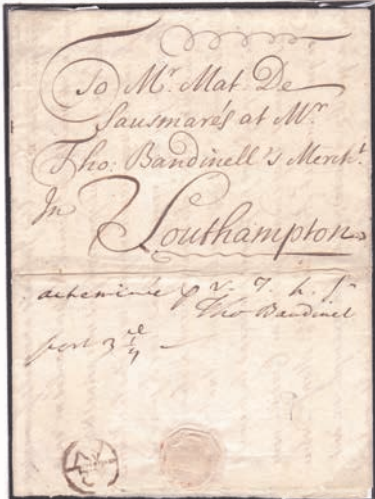 To Mr. Mat. De
Sausmarés at Mr.
Tho: Bandinell's Mercht.
In Southampton
acheminée p v. T. h. s
Tho Bandinel
port 3